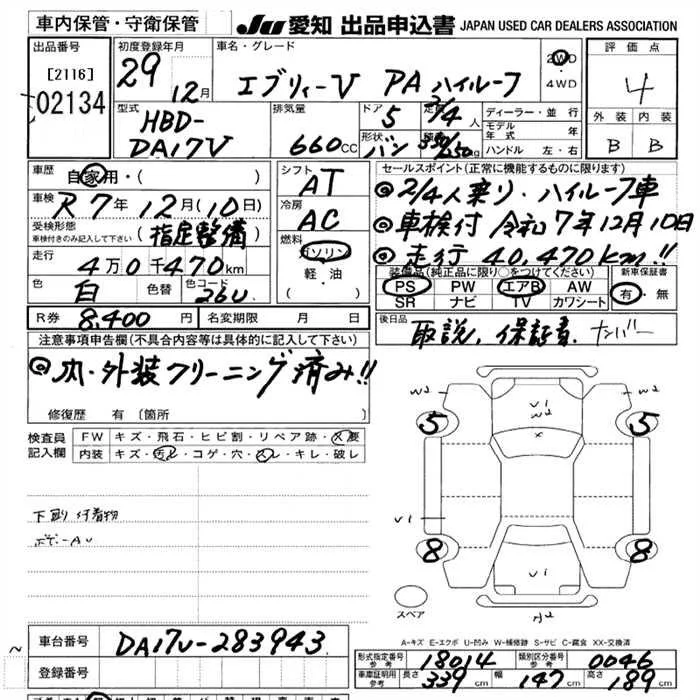 車内保管・守衛保管
JU 愛知 出品申込書 JAPAN USED CAR DEALERS ASSOCIATION
出品番号
[2116]
02134
初度登録年月
29
12月
車名・グレード
エブリィーV PA ハイルーフ
2WD
・
4WD
評価点
4
外装 内装
B B
型式
HBD-
DA17V
排気量
660cc
ドア 5
形状 バン
定員 2/4人
積載 350/250kg
ディーラー・並行
モデル
年式 年
ハンドル 左・右
車歴 自家用・( )
車検 R7年12月(10日)
受検形態
車検付きのみ記入して下さい (指定整備)
走行
4万0千470km
色 白 色替 色コード 26U
シフト AT
冷房 AC
燃料
ガソリン
・
軽・油
( )
セールスポイント(正常に機能するものに限ります)
◎2/4人乗り・ハイルーフ車
◎車検付 令和7年12月10日
◎走行 40,470km!!
装備品(純正品に限り○をつけてください)
PS PW エアB AW
SR ナビ TV カワシート
新車保証書
有・無
R券 8,400円 名変期限 月 日
後日品 取説、保証書、ナンバー
注意事項申告欄(不具合内容等は具体的に記入して下さい)
◎内・外装クリーニング済み!!
修復歴 有〔箇所
検査員
記入欄
FW キズ・飛石・ヒビ割・リペア跡・X要
内装 キズ・汚レ・コゲ・穴・スレ・キレ・破レ
下廻り付着物
W2 W2
5 5
V1
W2
X
V1
8 8
V1
スペア
A-キズ E-エクボ U-凹み W-補修跡 S-サビ C-腐食 XX-交換済
車台番号 DA17V-283943
登録番号
形式指定番号
参考 18014
類別区分番号
参考 0046
車庫証明用
参考 長さ 339cm 幅 147cm 高さ 189cm